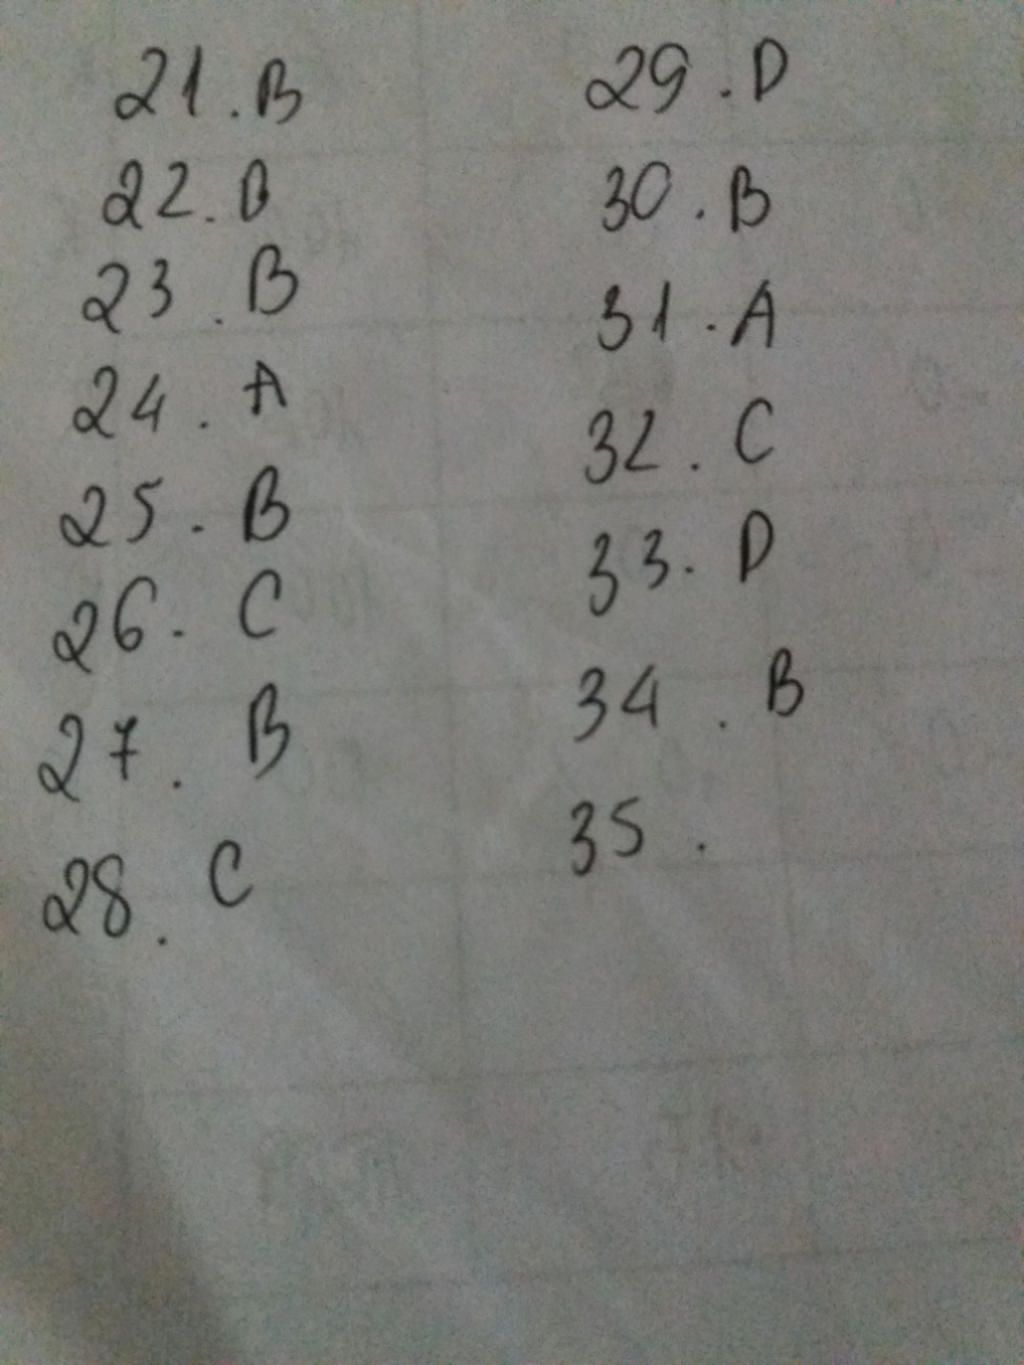 21. B
22. D
23. B
24. A
25. B
26. C
27. B
28. C
29. D
30. B
31. A
32. C
33. D
34. B
35.